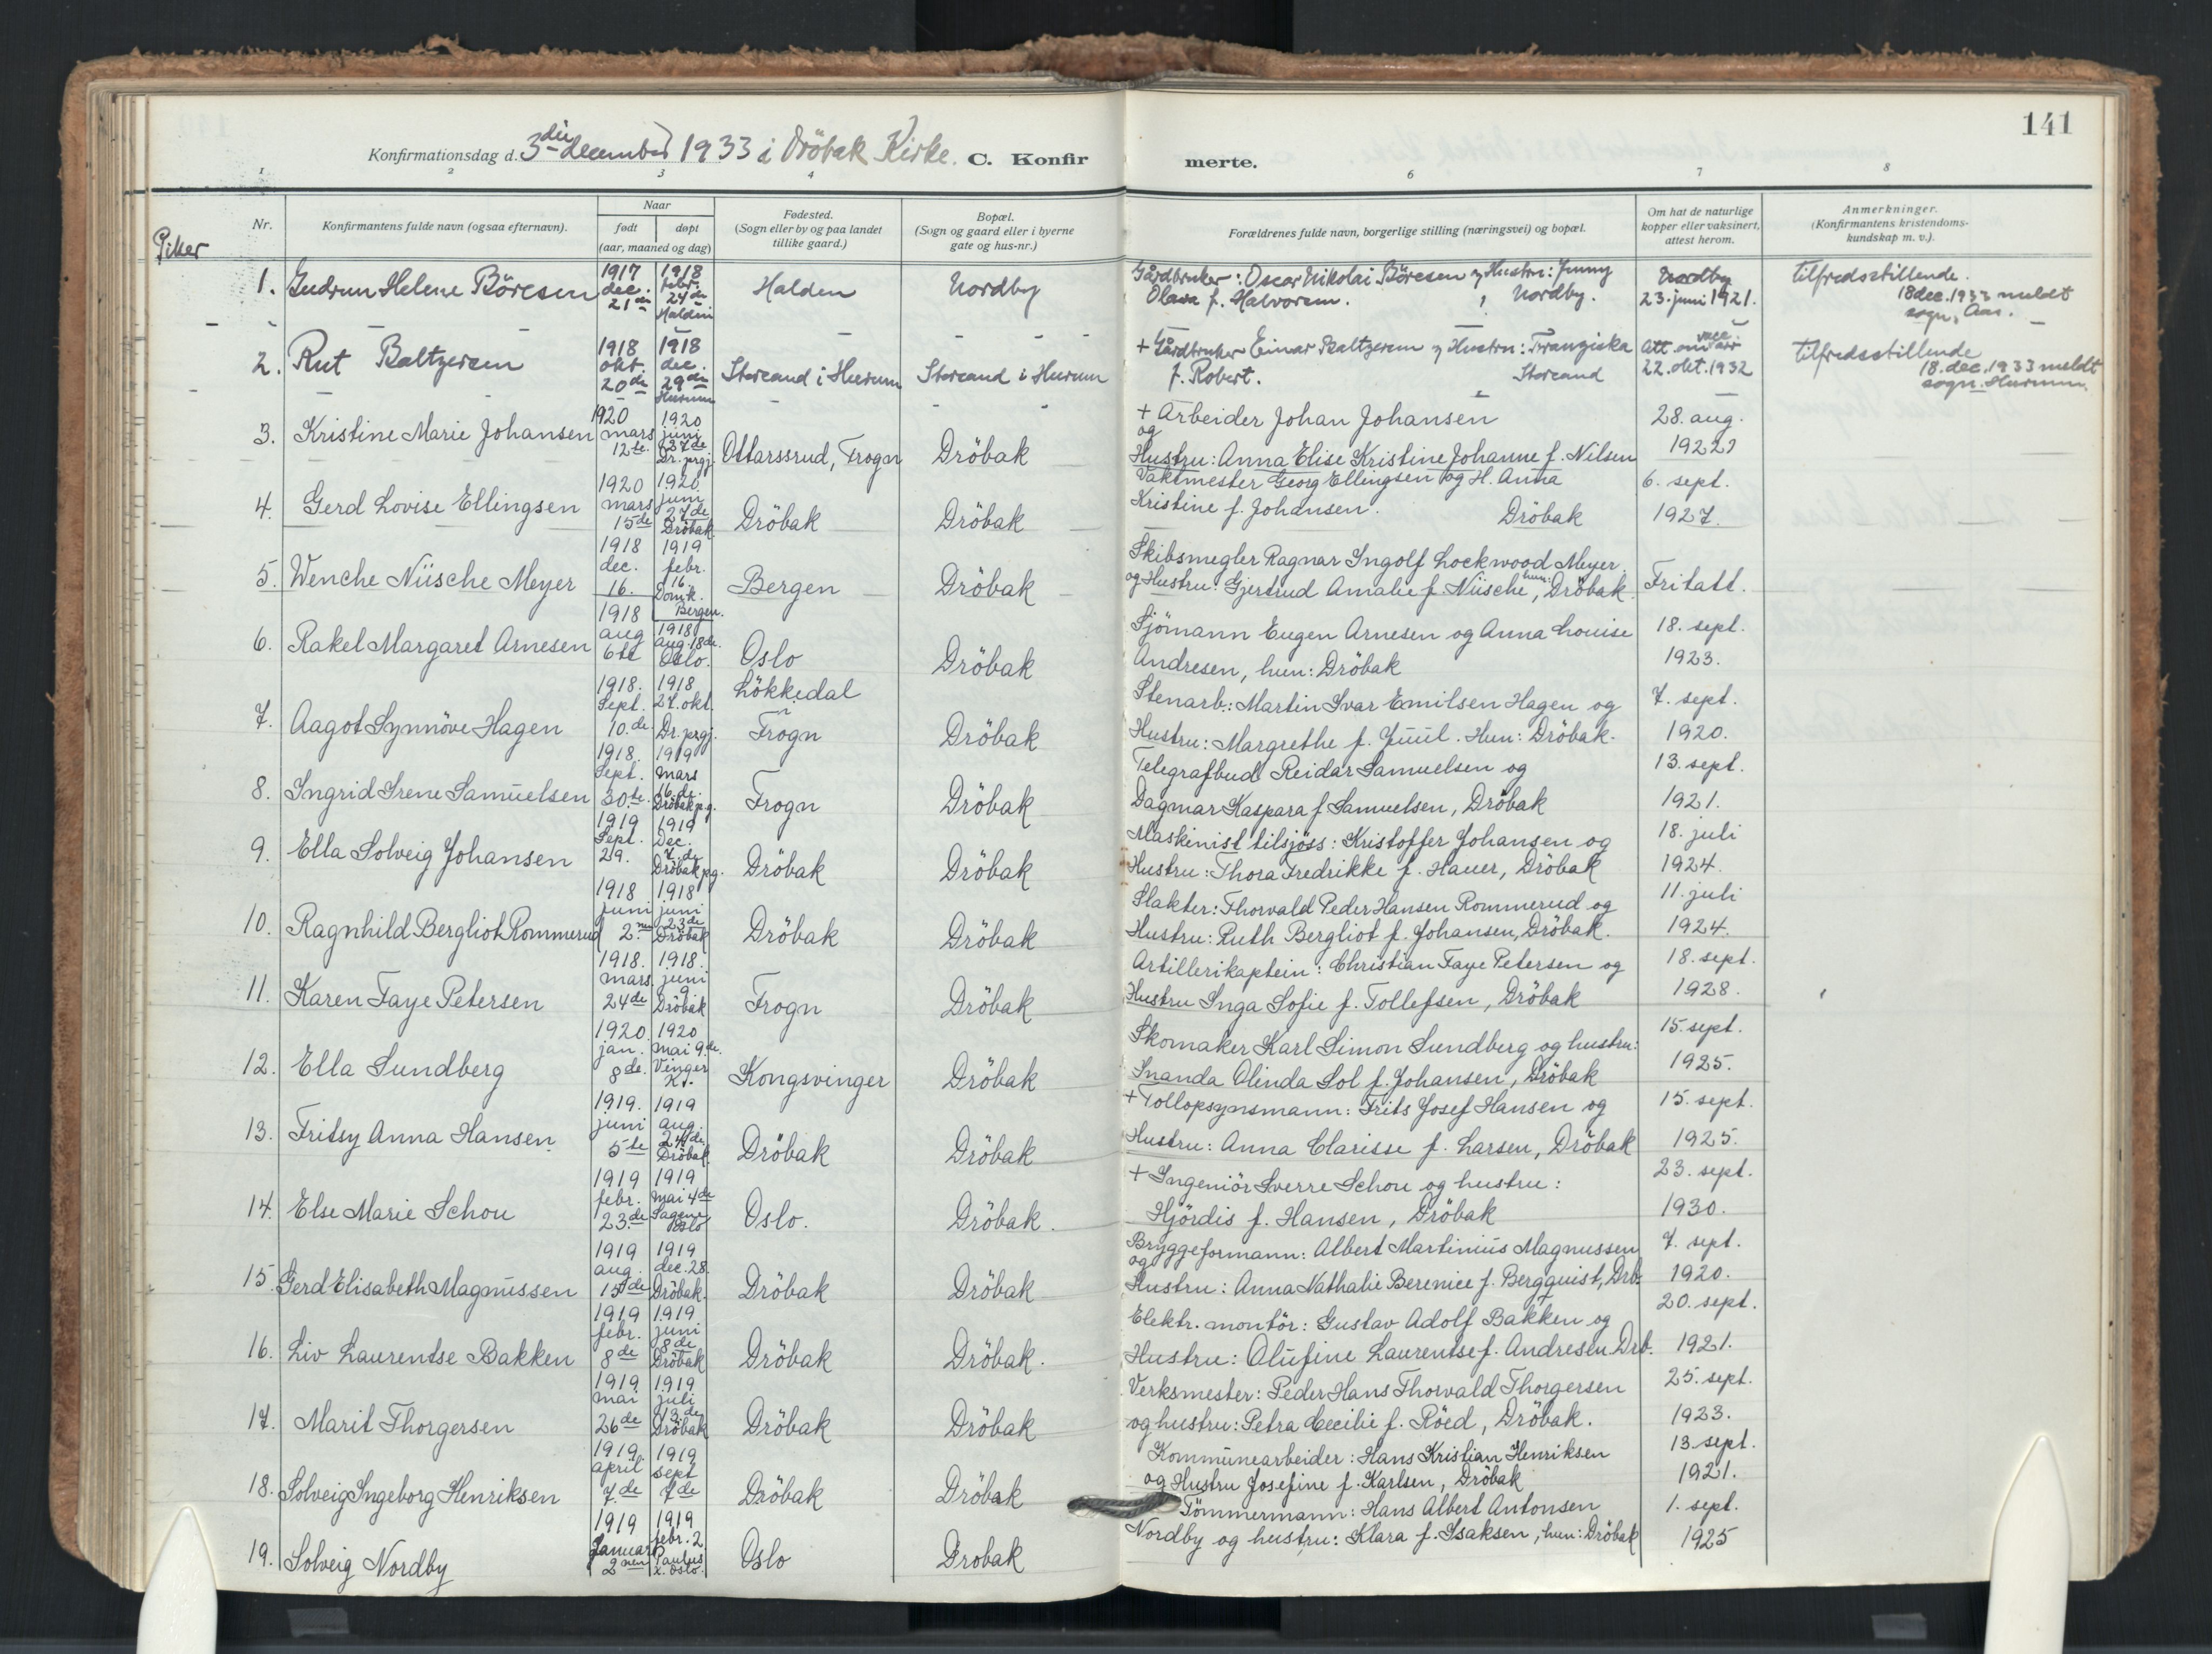 141
Konfirmationsdag d. 3die december 1933 i Dröbak Kirke. C. Konfirmerte.
1 2 3 4 6 7 8
Piker
Nr.
Konfirmantens fulde navn (ogsaa efternavn).
Naar
født døpt
(aar, maaned og dag)
Fødested.
(Sogn eller by og paa landet
tillike gaard.)
Bopæl.
(Sogn og gaard eller i byerne
gate og hus-nr.)
Forældrenes fulde navn, borgerlige stilling (næringsvei) og bopæl.
Om hat de naturlige
kopper eller vaksinert,
attest herom.
Anmerkninger.
(Konfirmantens kristendoms-
kundskap m. v.).
1. Gudrun Helene Börcsen
1917 dec. 21de
1918 febr. 24de Halden
Halden
Nordby
Gårdbruker: Oscar Nikolai Börcsen og Hustru: Jenny
Olava f. Halvorsen. Nordby.
Nordby
23. juni 1921.
Tilfredsstillende.
18 dec. 1933 meldt
sogn. Aas.
2. Rut Baltzersen
1918 okt. 20de
1918 dec. 29de Hurum
Storsand i Hurum
Storsand i Hurum
+ Gårdbruker Einar Baltzersen og Hustru: Franziska
f. Robert. Storsand
Att. om vacc.
22. okt. 1932
Tilfredsstillende
18. dec. 1933 meldt
sogn. Hurum.
3. Kristine Marie Johansen
1920 mars 12te
1920 juni 27de Dr. prgj.
Ottarssrud, Frogn
Dröbak
+ Arbeider Johan Johansen
og
Hustru: Anna Elise Kristine Johanne f. Nilsen
28. aug.
1922
4. Gerd Lovise Ellingsen
1920 mars 15de
1920 juni 27de Dröbak
Dröbak
Dröbak
Vaktmester Georg Ellingsen og H. Anna
Kristine f. Johansen. Dröbak
6. sept.
1927.
5. Wenche Nüsche Meyer
1918 dec. 16.
1919 febr. 16. Domk. Bergen.
Bergen
Dröbak
Skibsmegler Ragnar Ingolf Lockwood Meyer
og Hustru: Gjertrud Amalie f. Nüsche, hun: Dröbak.
Fritatt.
6. Rakel Margaret Arnesen
1918 aug 6te
1918 aug. 18de. Oslo.
Oslo
Dröbak
Sjömann Eugen Arnesen og Anna Louise
Andresen, hun: Dröbak
18. sept.
1923.
7. Aagot Synnöve Hagen
1918. Sept. 10.de
1918 27. okt. Dr. prgj.
Lökkedal
i
Frogn
Dröbak
Stenarb.: Martin Ivar Emilsen Hagen og
Hustru: Margrethe f. Juul. Hun: Dröbak.
7. sept.
1920.
8. Ingrid Irene Samuelsen
1918. Sept. 30.te
1919 mars 16.de. Dröbak pg.
Frogn
Dröbak
Telegrafbud Reidar Samuelsen og
Dagmar Kaspara f. Samuelsen, Dröbak
13. sept.
1921.
9. Ella Solveig Johansen
1919 Sept. 29.
1919 Dec. 7.de Dröbak pg.
Dröbak
Dröbak
Maskinist tilsjöss: Kristoffer Johansen og
Hustru: Thora Fredrikke f. Hauer, Dröbak
18. juli
1924.
10. Ragnhild Bergliot Rommerud
1918 juni 2.nen
1918 juni 23de Dröbak
Dröbak
Dröbak
Slakter: Thorvald Peder Hansen Rommerud og
Hustru: Ruth Bergliot f. Johansen, Dröbak.
11. juli
1924.
11. Karen Faye Petersen
1918. mars 24de
1918. juni 9 Dröbak
Frogn
Dröbak
Artillerikaptein: Christian Faye Petersen og
Hustru Inga Sofie f. Tollefsen, Dröbak
18. sept.
1928.
12. Ella Sundberg
1920 jan. 8de.
1920 mai 9.de. Vinger K.
Kongsvinger
Dröbak
Skomaker Karl Simon Sundberg og hustru:
Inanda Olinda Sol f. Johansen, Dröbak
15. sept.
1925.
13. Fritsy Anna Hansen
1919. juni 5te
1919 aug. 24de. Dröbak
Dröbak
Dröbak
+ Tollopsynsmann: Frits Josef Hansen og
Hustru: Anna Clarisse f. Larsen, Dröbak
15. sept.
1925.
14. Else Marie Schou
1919 febr. 23.de
1919 mai 4de Sagene Oslo
Oslo.
Dröbak.
+ Ingeniör Sverre Schou og hustru:
Hjördis f. Hansen, Dröbak
23. sept.
1930.
15 Gerd Elisabeth Magnussen
1919 aug. 15de
1919 dec. 28. Dröbak.
Dröbak
Dröbak
Bryggeformann: Albert Martinius Magnussen
og
Hustru: Anna Nathalie Berenice f. Bergquist, Drb.
7. sept.
1920.
16. Liv Laurentse Bakken
1919 febr. 8de
1919 juni 8de Dröbak
Dröbak
Dröbak.
Elektr. montör: Gustav Adolf Bakken og
Hustru: Olufine Laurentse f. Andresen Drb.
20. sept.
1921.
17. Marit Thorgersen
1919 mai 26de
1919 juli 13de Dröbak
Dröbak
Dröbak
Verksmester: Peder Hans Thorvald Thorgersen
og hustru: Petra Cecilie f. Röed, Dröbak.
25. sept.
1923.
18. Solveig Ingeborg Henriksen
1919. april 7.de
1919 sept 7de
Dröbak
Dröbak
Kommunearbeider: Hans Kristian Henriksen
og Hustru Josefine f. Karlsen, Dröbak
13 sept.
1921.
19. Solveig Nordby
1919 Januar 2nen
1919 febr. 2 Paulus k. Oslo.
Oslo
Drobak
Tömmermann: Hans Albert Antonsen
Nordby og hustru: Klara f. Isaksen, hun: Dröbak
1. sept.
1925